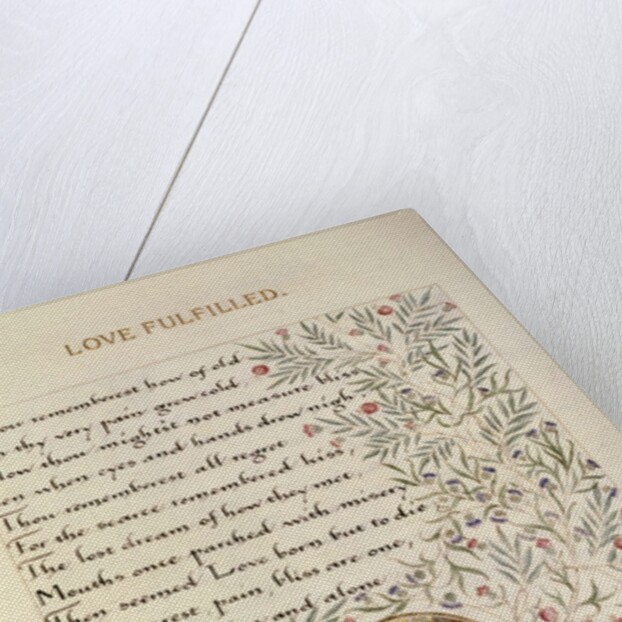 LOVE FULFILLED.
ou rememberest how of old
thy very pain grew cold,
ow thou might'st not measure bliss
en when eyes and hands drew nigh.
Thou rememberest all regret
For the scarce remembered kiss,
The lost dream of how they met,
Mouths once parched with misery
Then seemed Love born but to die
rest, pain, bliss are one,
and alone